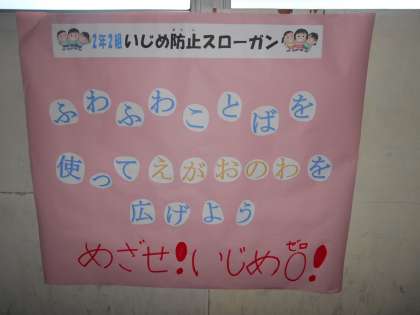 2年2組 いじめ防止スローガン
ふわふわことばを
使ってえがおのわを
広げよう
めざせ!いじめ0!
ゼロ